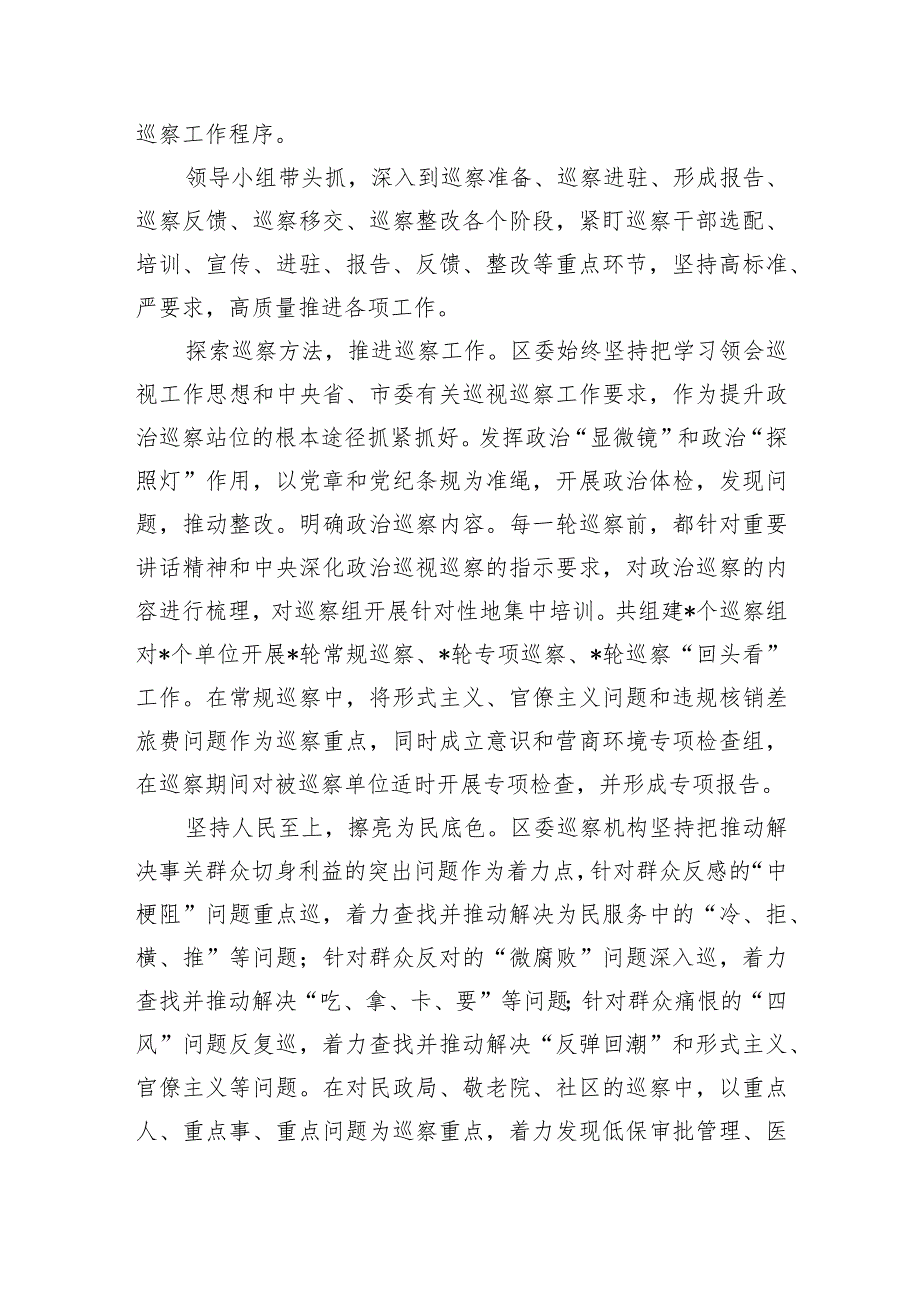 巡察工作程序。
领导小组带头抓，深入到巡察准备、巡察进驻、形成报告、
巡察反馈、巡察移交、巡察整改各个阶段，紧盯巡察干部选配、
培训、宣传、进驻、报告、反馈、整改等重点环节，坚持高标准、
严要求，高质量推进各项工作。
探索巡察方法，推进巡察工作。区委始终坚持把学习领会巡
视工作思想和中央省、市委有关巡视巡察工作要求，作为提升政
治巡察站位的根本途径抓紧抓好。发挥政治“显微镜”和政治“探
照灯”作用，以党章和党纪条规为准绳，开展政治体检，发现问
题，推动整改。明确政治巡察内容。每一轮巡察前，都针对重要
讲话精神和中央深化政治巡视巡察的指示要求，对政治巡察的内
容进行梳理，对巡察组开展针对性地集中培训。共组建*个巡察组
对*个单位开展*轮常规巡察、*轮专项巡察、*轮巡察“回头看”
工作。在常规巡察中，将形式主义、官僚主义问题和违规核销差
旅费问题作为巡察重点，同时成立意识和营商环境专项检查组，
在巡察期间对被巡察单位适时开展专项检查，并形成专项报告。
坚持人民至上，擦亮为民底色。区委巡察机构坚持把推动解
决事关群众切身利益的突出问题作为着力点，针对群众反感的“中
梗阻”问题重点巡，着力查找并推动解决为民服务中的“冷、拒、
横、推”等问题；针对群众反对的“微腐败”问题深入巡，着力
查找并推动解决“吃、拿、卡、要”等问题；针对群众痛恨的“四
风”问题反复巡，着力查找并推动解决“反弹回潮”和形式主义、
官僚主义等问题。在对民政局、敬老院、社区的巡察中，以重点
人、重点事、重点问题为巡察重点，着力发现低保审批管理、医